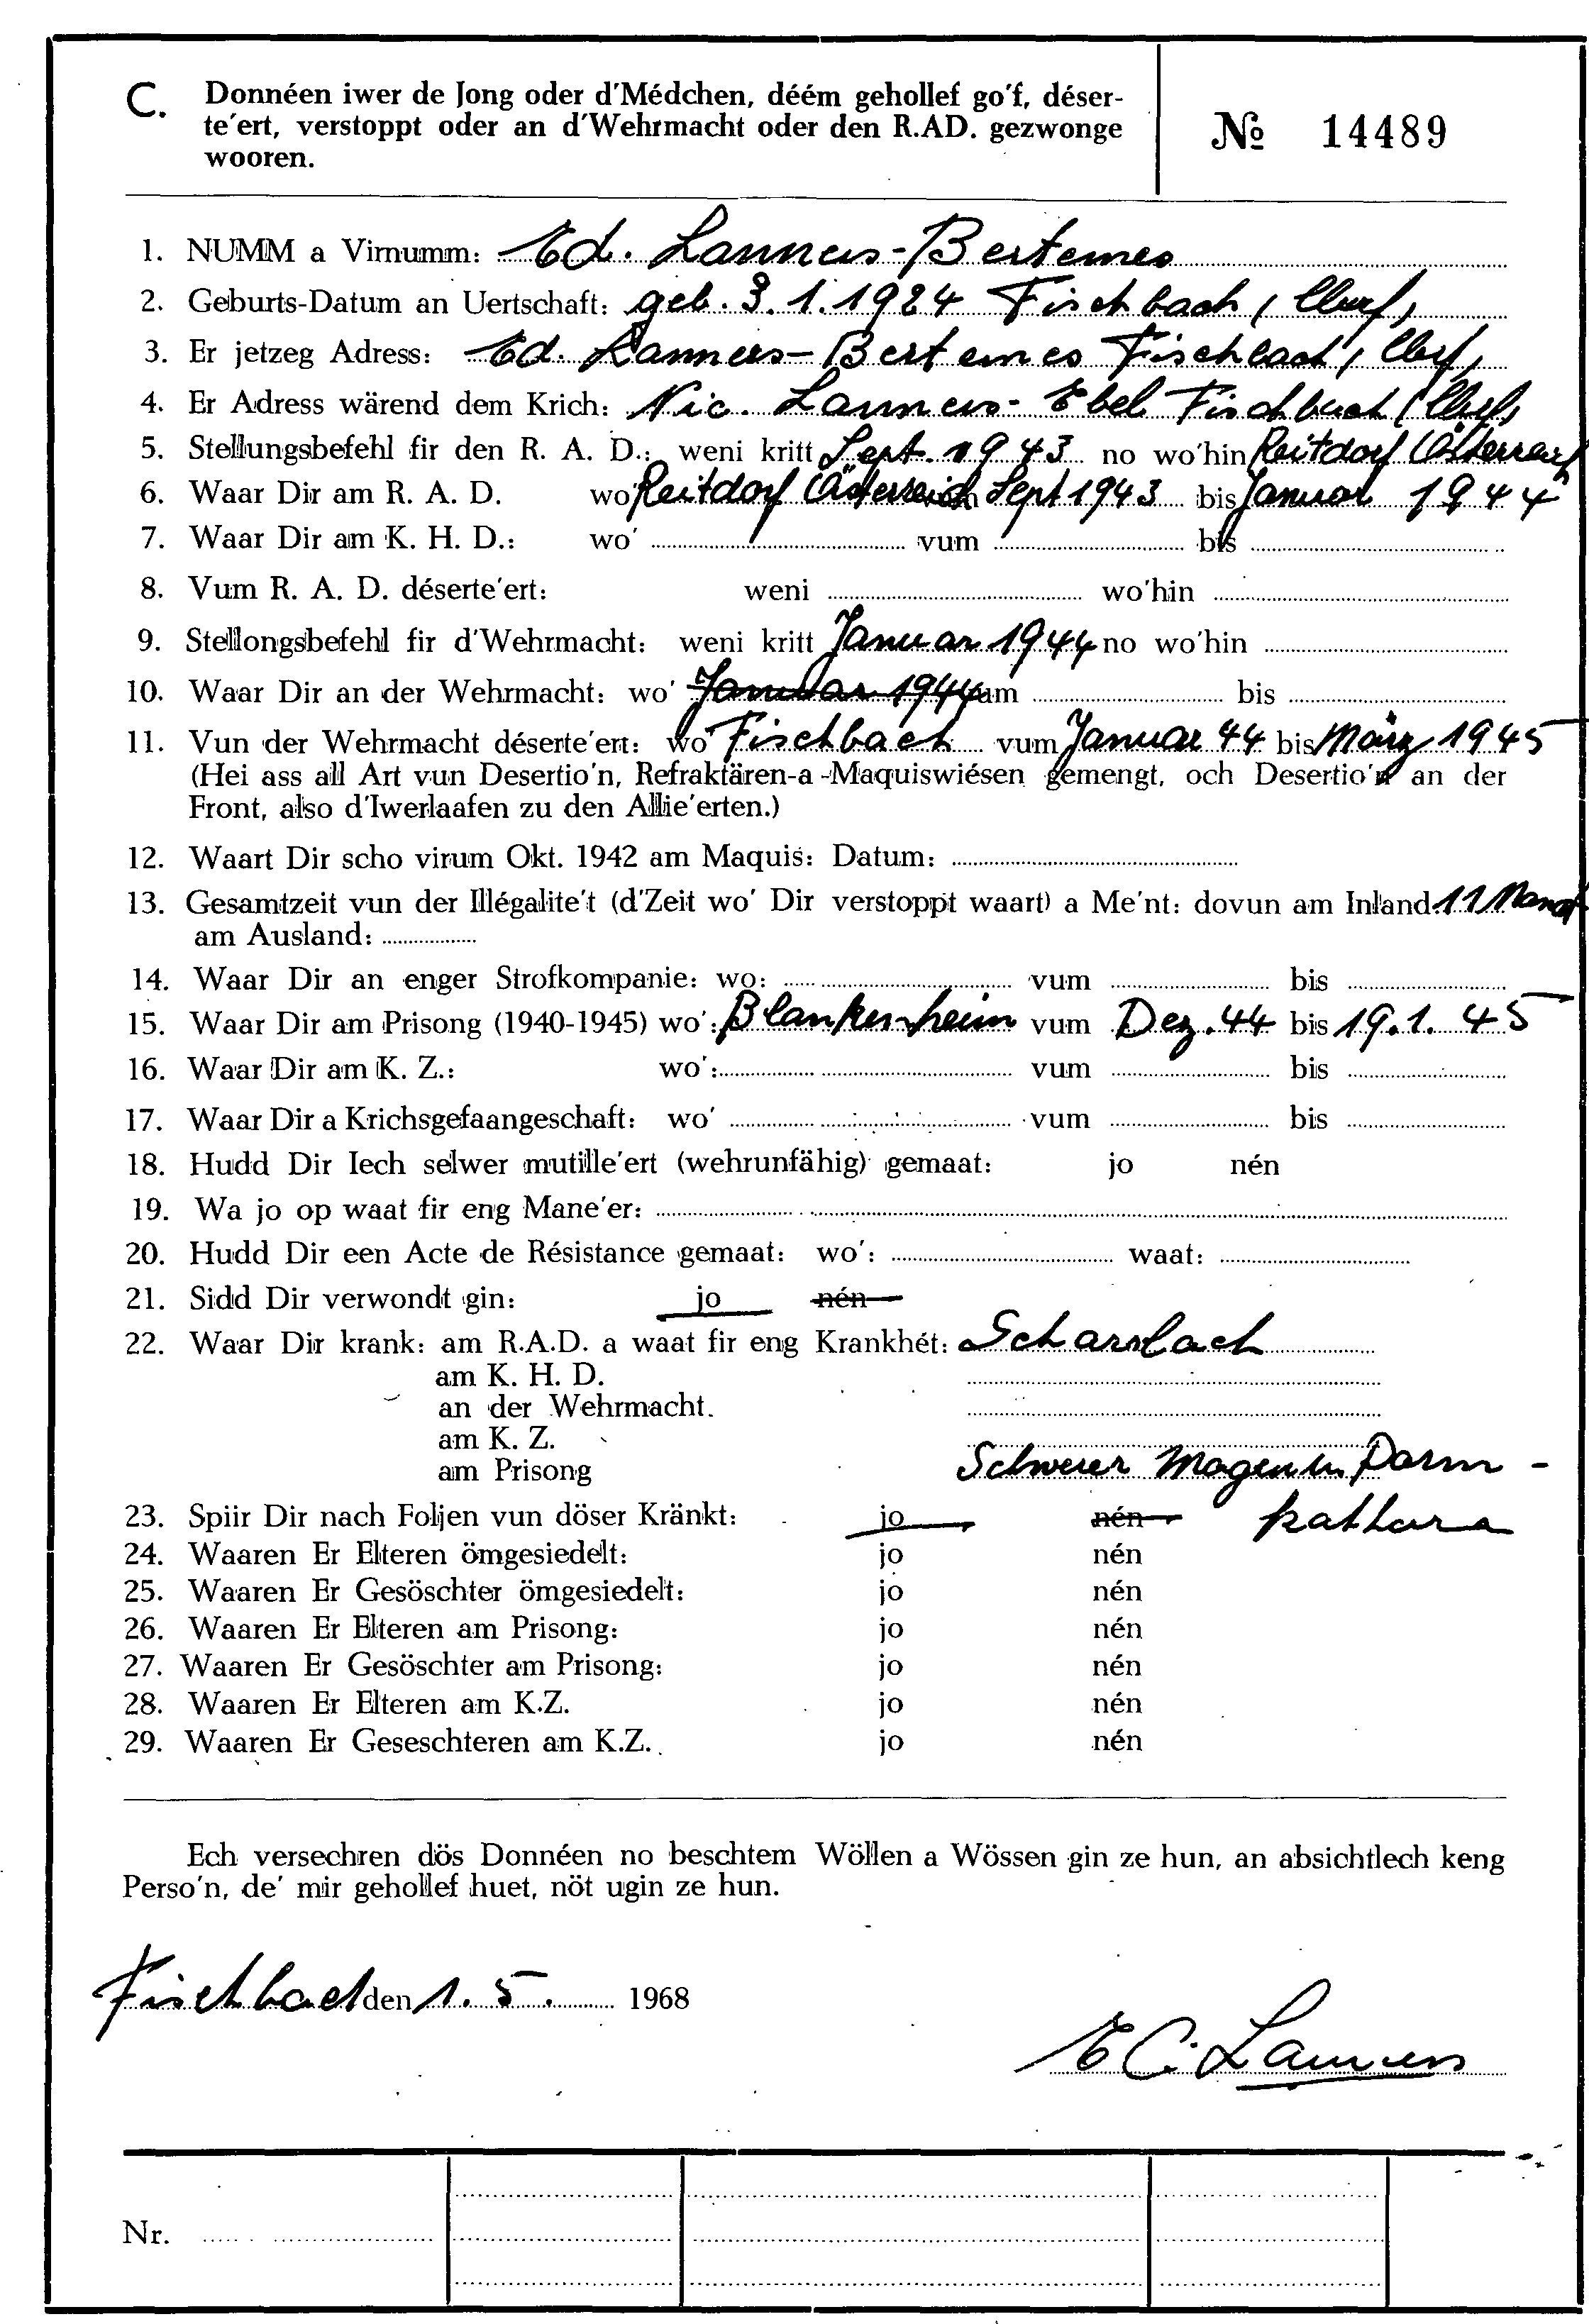 C. Donnéen iwer de Jong oder d'Médchen, déém gehollef go'f, déser-
te'ert, verstoppt oder an d'Wehrmacht oder den R.AD. gezwonge
wooren.
№ 14489
1. NUMM a Virnumm: Ed. Lanners-Bertemes
2. Geburts-Datum an Uertschaft: geb. 3.1.1924 Fischbach (Clerf)
3. Er jetzeg Adress: Ed. Lanners-Bertemes Fischbach (Clerf)
4. Er Adress wärend dem Krich: Nic. Lanners-Ebel Fischbach (Clerf)
5. Stellungsbefehl fir den R. A. D.: weni kritt Sept. 1943 no wo'hin Reitdorf (Österreich
6. Waar Dir am R. A. D. wo' Reitdorf (Österreich Sept 1943 bis Januar 1944
7. Waar Dir am K. H. D.: wo' vum bis
8. Vum R. A. D. déserte'ert: weni wo'hin
9. Stellongsbefehl fir d'Wehrmacht: weni kritt Januar 1944 no wo'hin
10. Waar Dir an der Wehrmacht: wo' Januar 1944 vum bis
11. Vun der Wehrmacht déserte'ert: wo' Fischbach vum Januar 44 bis März 1945
(Hei ass all Art vun Desertio'n, Refraktären-a-Maquiswiésen gemengt, och Desertio'n an der
Front, also d'Iwerlaafen zu den Allie'erten.)
12. Waart Dir scho virum Okt. 1942 am Maquis: Datum:
13. Gesamtzeit vun der Illégalite't (d'Zeit wo' Dir verstoppt waart) a Me'nt: dovun am Inland: 11 Monat
am Ausland:
14. Waar Dir an enger Strofkompanie: wo: vum bis
15. Waar Dir am Prisong (1940-1945) wo': Blankenheim vum Dez. 44 bis 19.1.45
16. Waar Dir am K. Z.: wo': vum bis
17. Waar Dir a Krichsgefaangeschaft: wo' vum bis
18. Hudd Dir Iech selwer mutille'ert (wehrunfähig) gemaat: jo nén
19. Wa jo op waat fir eng Mane'er:
20. Hudd Dir een Acte de Résistance gemaat: wo': waat:
21. Sidd Dir verwondt gin: jo nén
22. Waar Dir krank: am R.A.D. a waat fir eng Krankhét: Scharlach
am K. H. D.
an der Wehrmacht.
am K. Z.
am Prisong Schwerer Magen u. Darm-
23. Spiir Dir nach Foljen vun döser Kränkt: jo nén kathara
24. Waaren Er Elteren ömgesiedelt: jo nén
25. Waaren Er Gesöschter ömgesiedelt: jo nén
26. Waaren Er Elteren am Prisong: jo nén
27. Waaren Er Gesöschter am Prisong: jo nén
28. Waaren Er Elteren am K.Z. jo nén
29. Waaren Er Geseschteren am K.Z. jo nén
Ech versechren dös Donnéen no beschtem Wöllen a Wössen gin ze hun, an absichtlech keng
Perso'n, de' mir gehollef huet, nöt ugin ze hun.
Fischbach den 1. 5. 1968
Ed. Lanners
Nr.